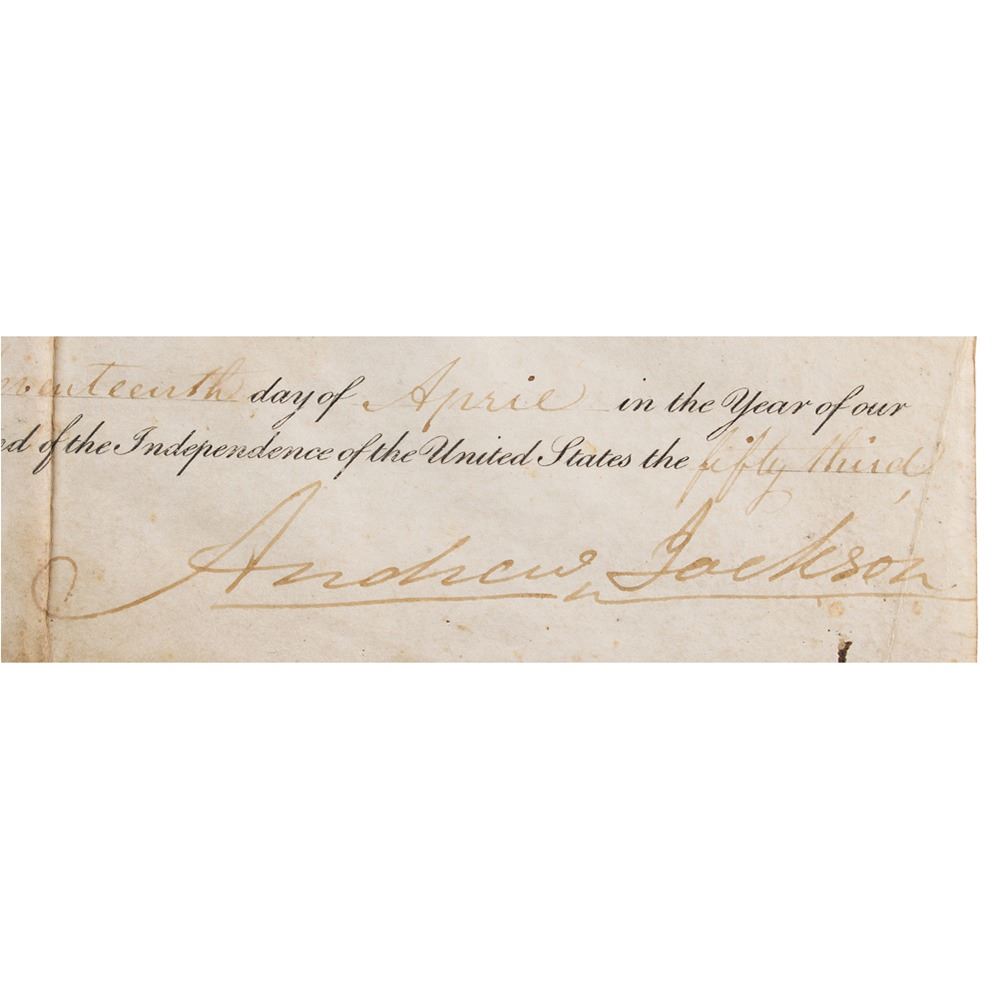 eventeenth day of April in the Year of our
ed of the Independence of the United States the fifty third,
Andrew Jackson